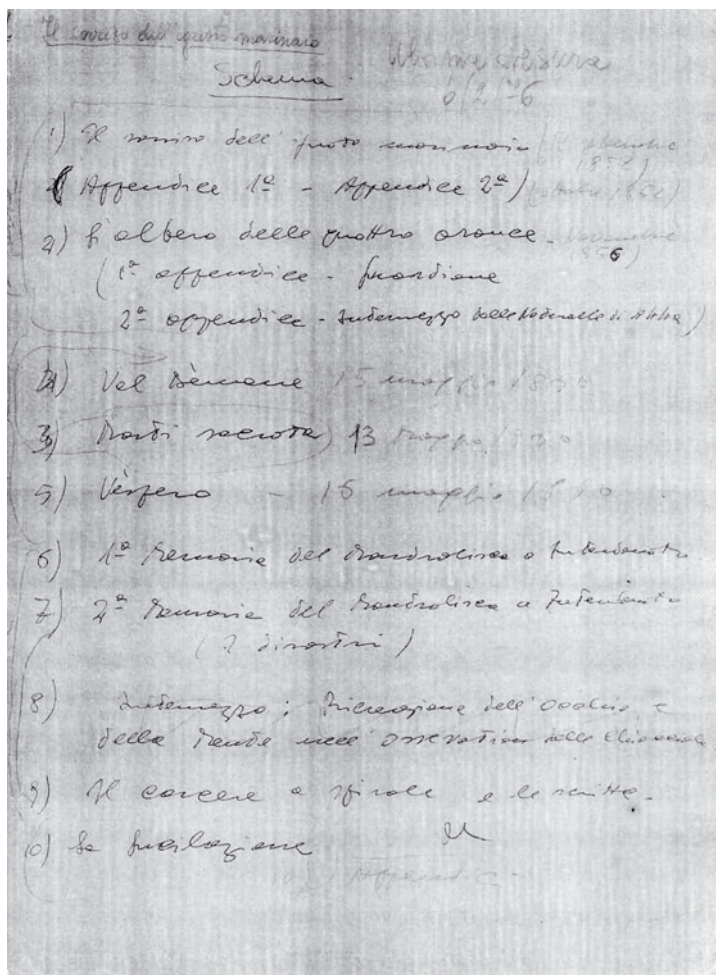 Il sorriso dell'ignoto marinaio
Ultima stesura
Schema
6/2/76
1) Il sorriso dell'ignoto marinaio (12 settembre
1852)
Appendice 1ª - Appendice 2ª) (ottobre 1852)
2) L'albero delle quattro arance - Novembre
1856)
(1ª appendice - Guardione
2ª appendice - Intermezzo delle Noterelle di Abba)
4) Val Dèmone 15 maggio 1860
3) Morti sacrata) 13 maggio 1860
5) Vespero - 15 maggio 1860
6) 1ª Memoria del Mandralisca a Interdonato
7) 2ª Memoria del Mandralisca a Interdonato
(I disastri)
8) Intermezzo: Ricreazione dell'Occhio e
della Mente nell'Osservation delle Chiocciole
9) Il carcere a spirale e le scritte.
10) La fucilazione
Appendice